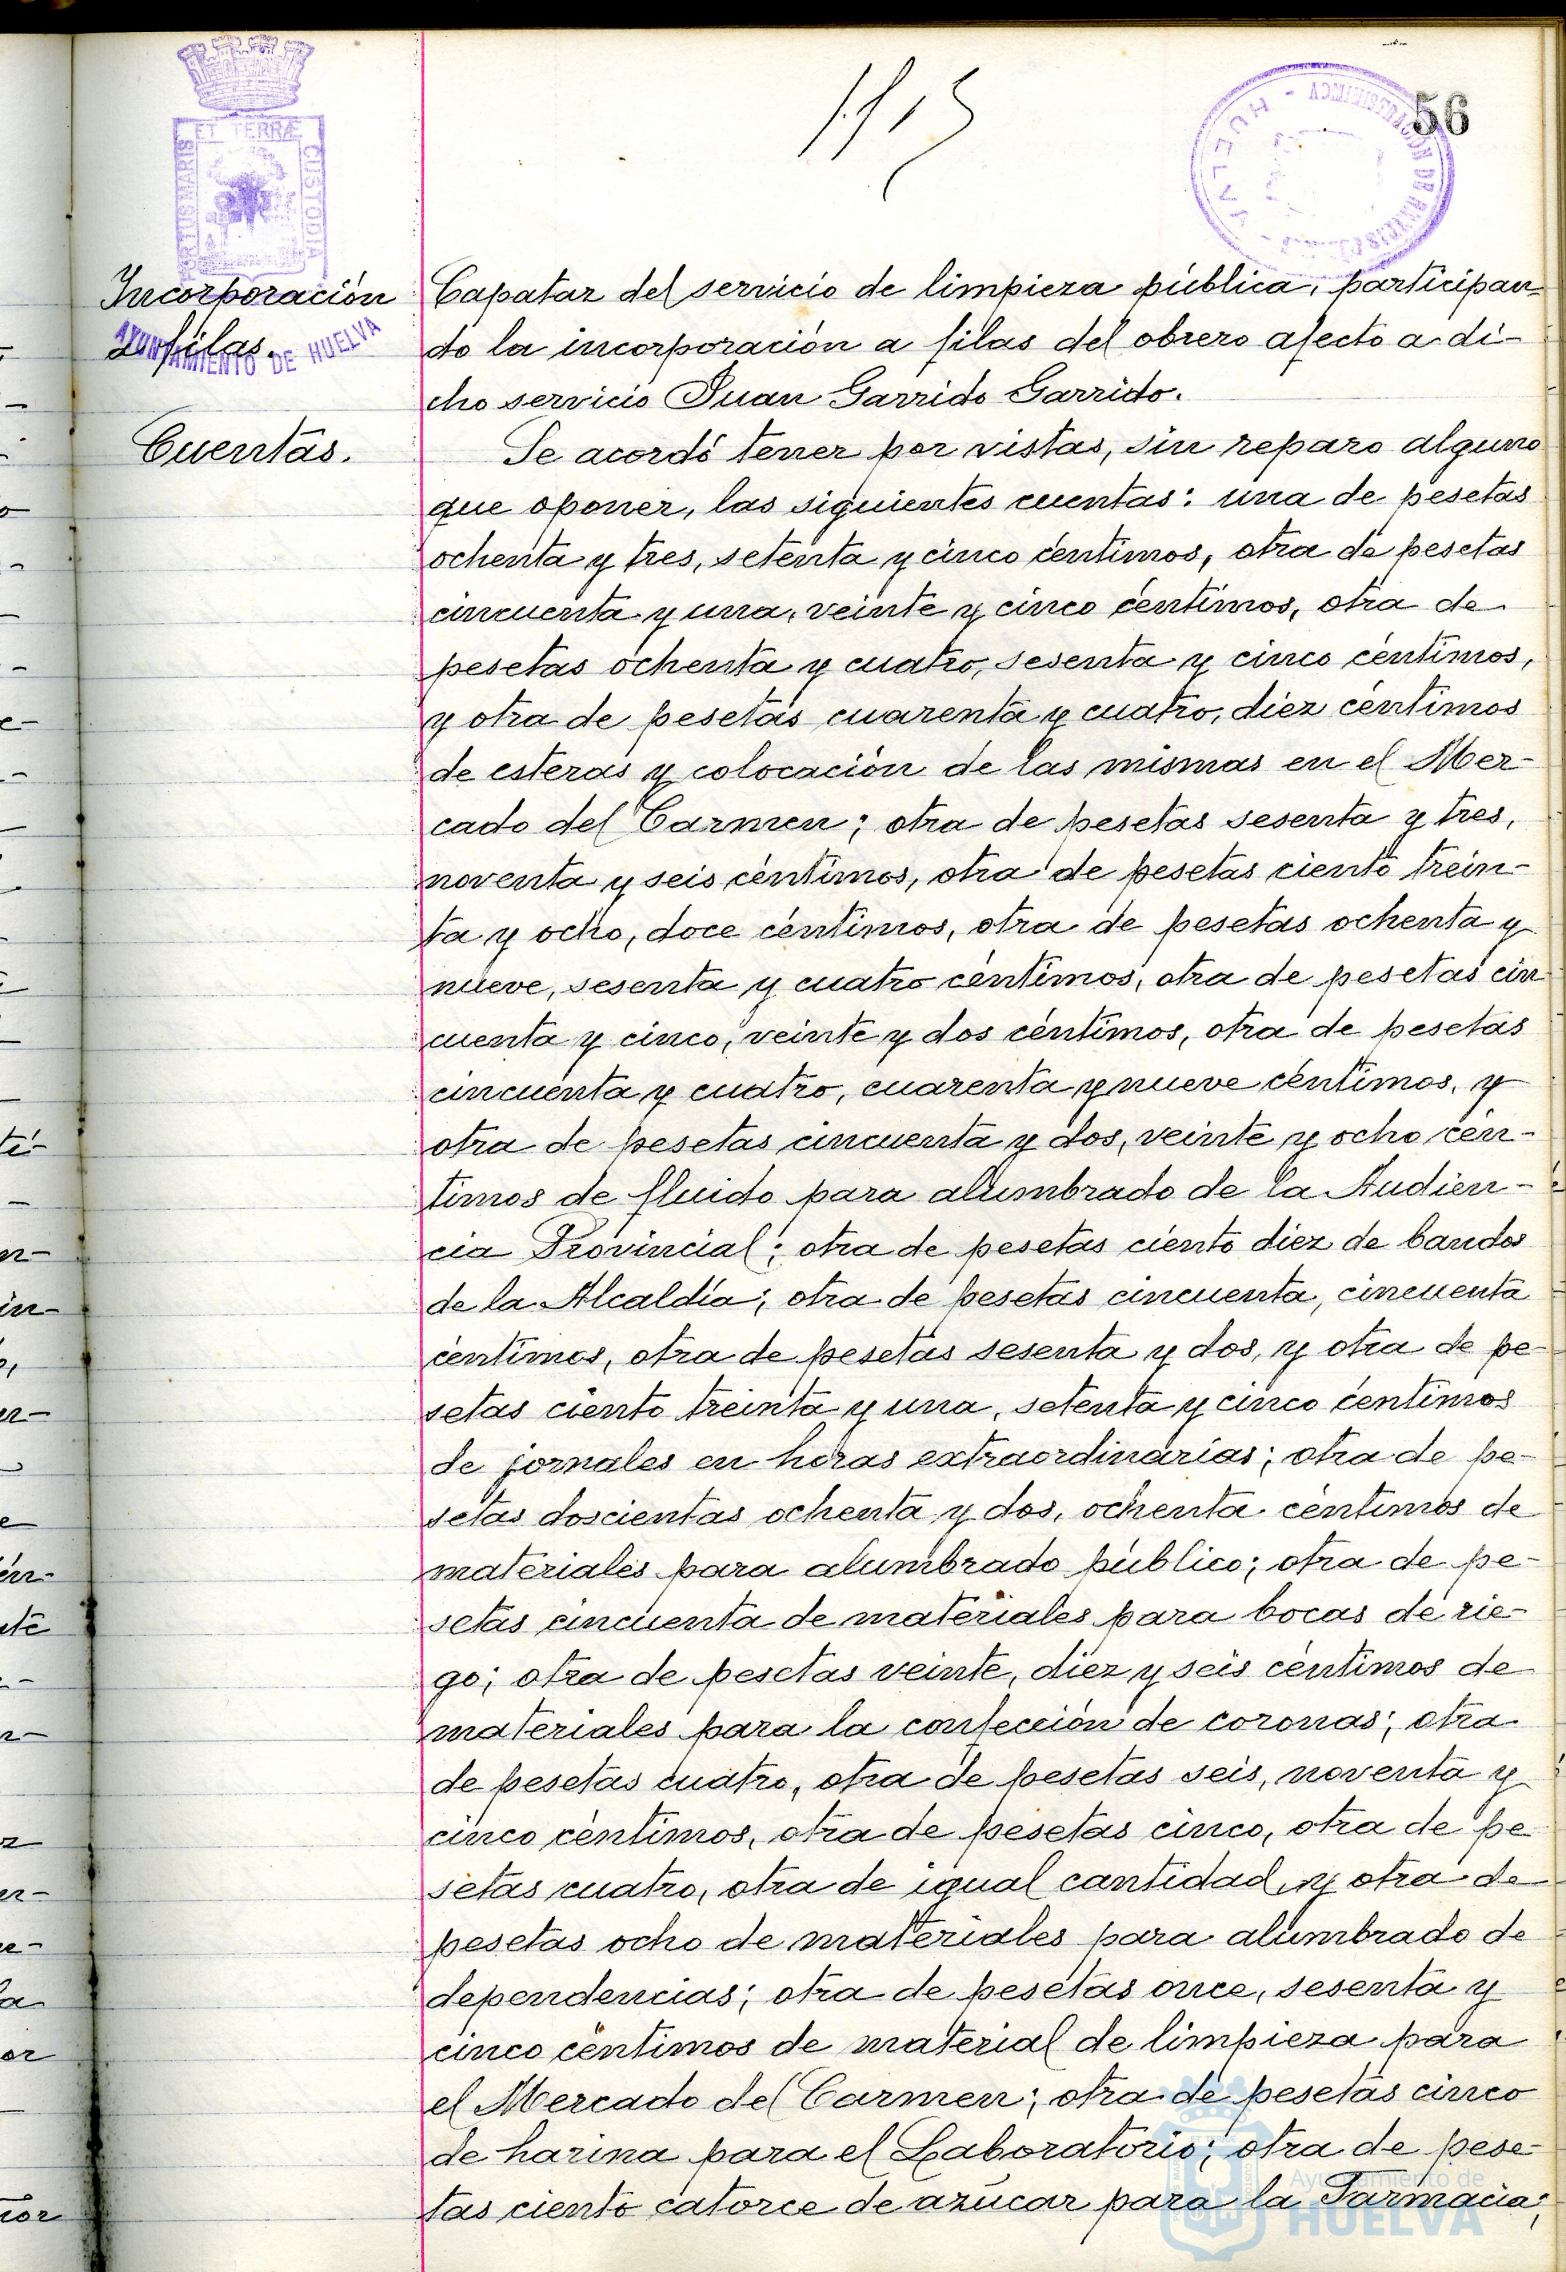 56
PORTUS MARIS ET TERRÆ CUSTODIA
AYUNTAMIENTO DE HUELVA
HUELVA
Incorporación
a filas.
Capataz del servicio de limpieza pública, participan-
do la incorporación a filas del obrero afecto a di-
cho servicio Juan Garrido Garrido.
Cuentas.
Se acordó tener por vistas, sin reparo alguno
que oponer, las siguientes cuentas: una de pesetas
ochenta y tres, setenta y cinco céntimos, otra de pesetas
cincuenta y una, veinte y cinco céntimos, otra de
pesetas ochenta y cuatro, sesenta y cinco céntimos,
y otra de pesetas cuarenta y cuatro, diez céntimos
de esteras y colocación de las mismas en el Mer-
cado del Carmen; otra de pesetas sesenta y tres,
noventa y seis céntimos, otra de pesetas ciento trein-
ta y ocho, doce céntimos, otra de pesetas ochenta y
nueve, sesenta y cuatro céntimos, otra de pesetas cin
cuenta y cinco, veinte y dos céntimos, otra de pesetas
cincuenta y cuatro, cuarenta y nueve céntimos, y
otra de pesetas cincuenta y dos, veinte y ocho cén-
timos de fluido para alumbrado de la Audien-
cia Provincial; otra de pesetas ciento diez de bandos
de la Alcaldía; otra de pesetas cincuenta, cincuenta
céntimos, otra de pesetas sesenta y dos, y otra de pe-
setas ciento treinta y una, setenta y cinco céntimos
de jornales en horas extraordinarias; otra de pe-
setas doscientas ochenta y dos, ochenta céntimos de
materiales para alumbrado público; otra de pe-
setas cincuenta de materiales para bocas de rie-
go; otra de pesetas veinte, diez y seis céntimos de
materiales para la confección de coronas; otra
de pesetas cuatro, otra de pesetas seis, noventa y
cinco céntimos, otra de pesetas cinco, otra de pe
setas cuatro, otra de igual cantidad, y otra de
pesetas ocho de materiales para alumbrado de
dependencias; otra de pesetas once, sesenta y
cinco céntimos de material de limpieza para
el Mercado del Carmen; otra de pesetas cinco
de harina para el Laboratorio; otra de pese-
tas ciento catorce de azúcar para la Farmacia;
Ayuntamiento de
HUELVA